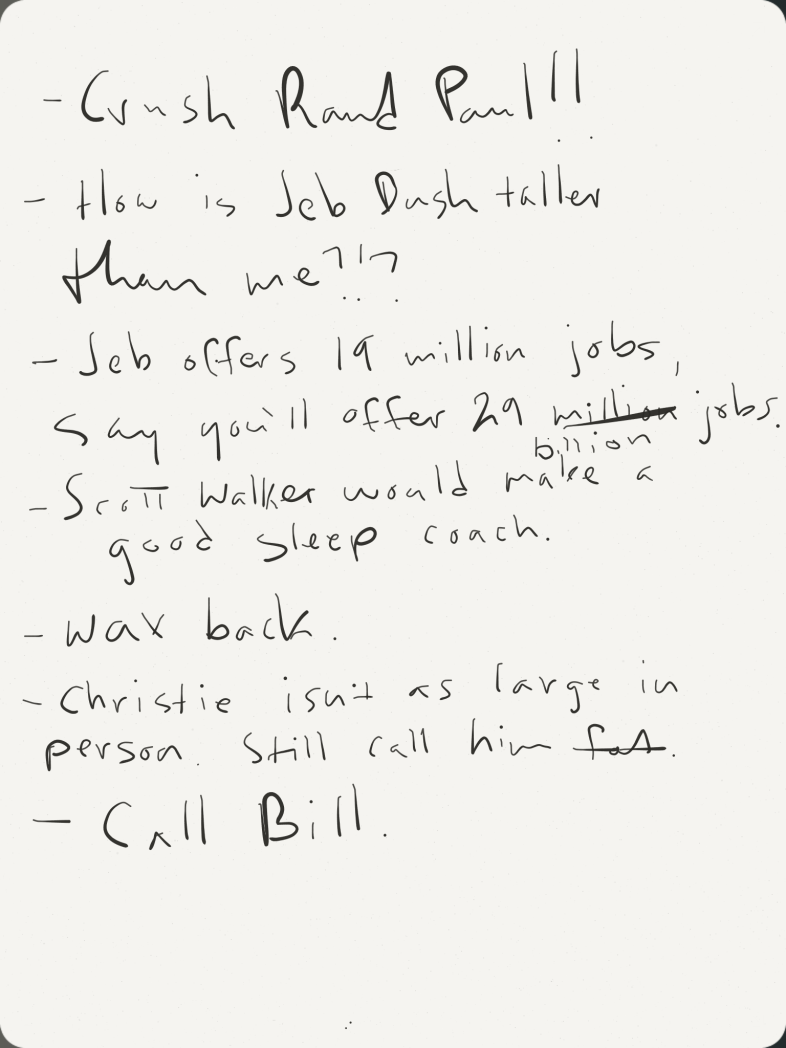 - Crush Rand Paul!!
- How is Jeb Bush taller
than me?!?
- Jeb offers 19 million jobs,
say you'll offer 29 million jobs.
billion
- Scott Walker would make a
good sleep coach.
- wax back.
- Christie isn't as large in
person. Still call him fat.
- Call Bill.